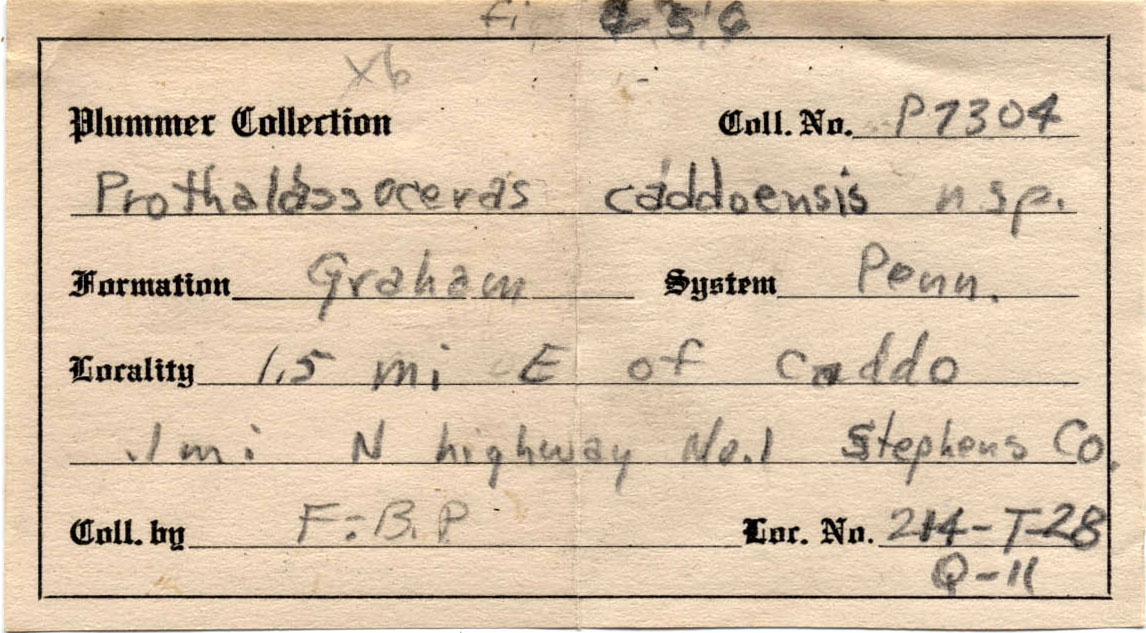 x6
Plummer Collection Coll. No. P7304
Prothalassoceras caddoensis n sp.
Formation Graham System Penn.
Locality 1.5 mi E of Caddo
.1 mi N highway No.1 Stephens Co.
Coll. by F.B.P Loc. No. 214-T-28
Q-11